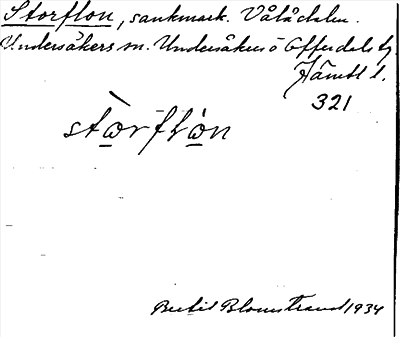 Storflon, sankmark. Vålådalen.
Undersåkers sn. Undersåkers o Offerdals tg.
Jämtl l.
321
stòrflón
Bertil Blomstrand 1934